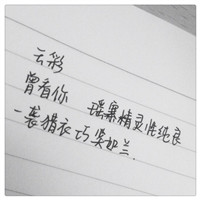 云彩
曾看你 瑶寨精灵性纯良
一袭猎衣巧笑如兰.